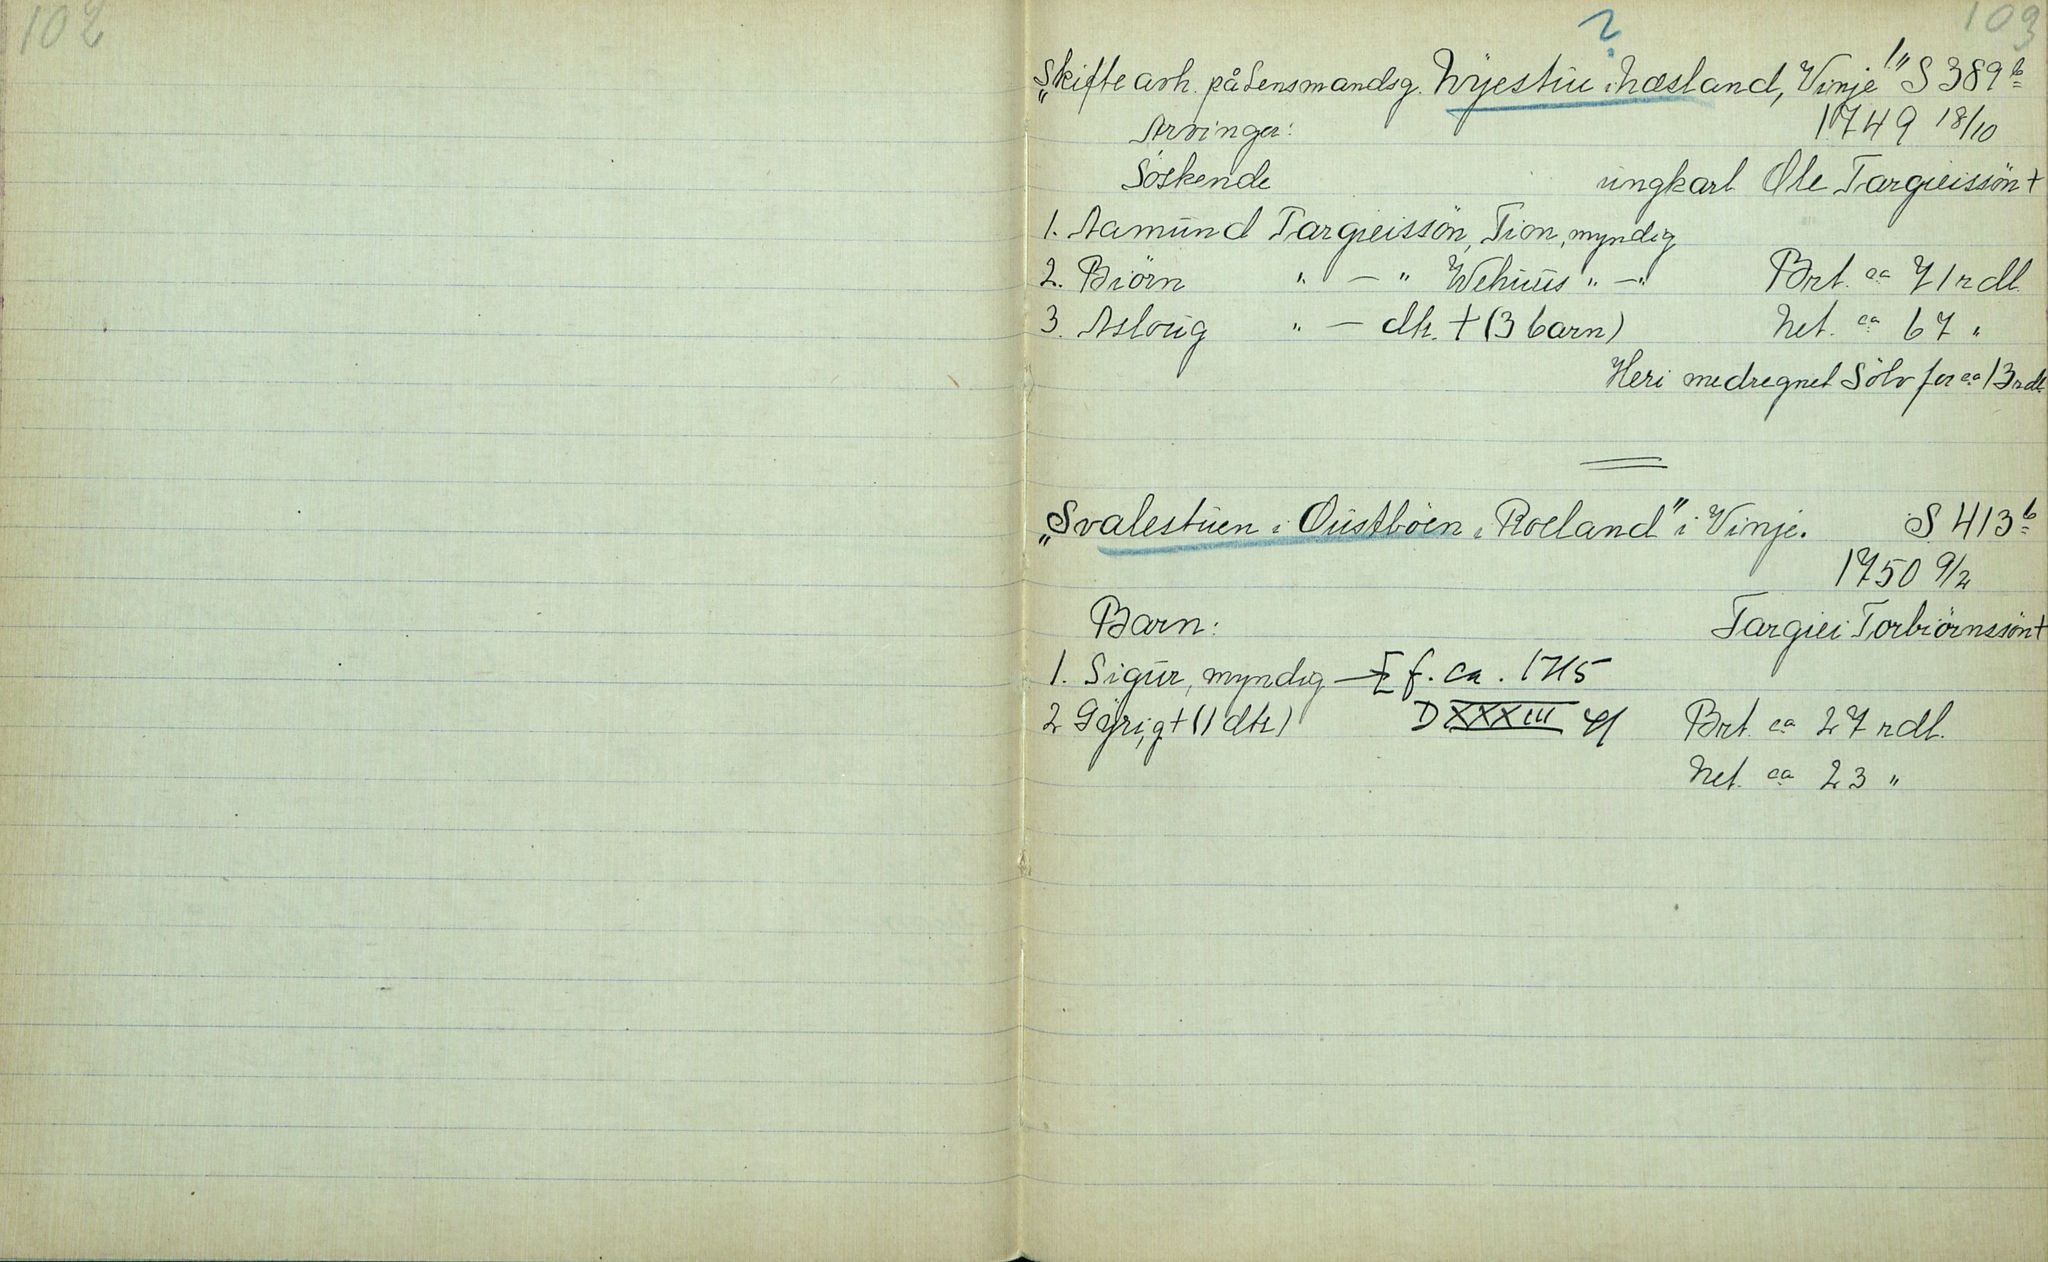 102
103
?
„Skifte avh. på Lensmandsg. Nyestüe i Næsland, Vinje!" S 389 b
Arvinger: 1749 18/10
Söskende ungkarl Ole Targieissön +
1. Aamünd Targieissön, Tion, myndig
2. Biörn " — " Wehuus " — " Brt. ca 71 rdl.
3. Asloüg " — dtr. + (3 barn) Net. ca 67 "
Heri medregnet Sölv for ca 13 rdl.
„Svalestüen i Oüstböen i Roeland" i Vinje. S. 413 b
1750 9/2
Barn: Targiei Torbiörnssön +
1. Sigür, myndig — f. ca. 1715
2 Gyri, g + (1 dtr) D XXXIII Brt. ca 27 rdl.
Net. ca 23 "